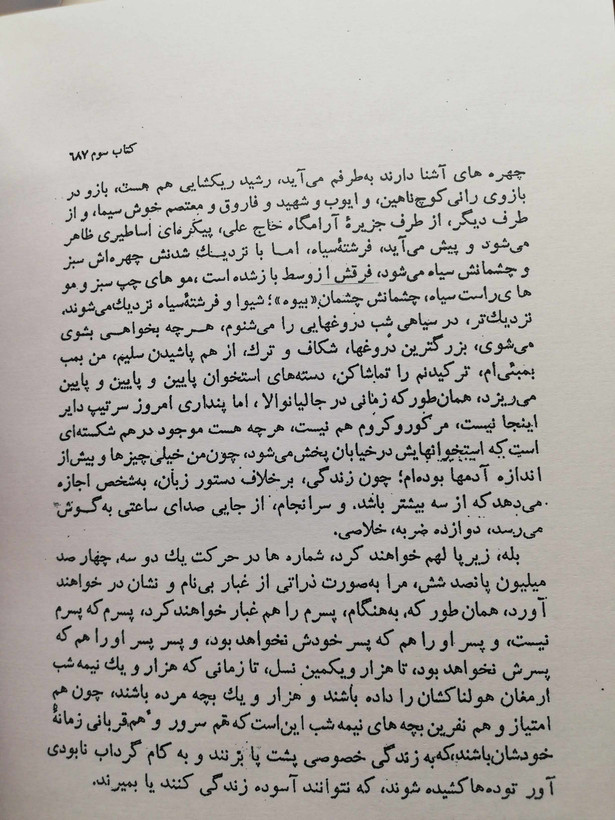 کتاب سوم ۶۸۷
چهره های آشنا دارند به‌طرفم می‌آید، رشید ریکشایی هم هست، بازو در
بازوی رانی کوچ‌ناهین، و ایوب و شهید و فاروق و معتصم خوش سیما، و از
طرف دیگر، از طرف جزیرهٔ آرامگاه حاج علی، پیکره‌ای اساطیری ظاهر
می‌شود و پیش می‌آید، فرشتهٔ‌سیاه، اما با نزدیک شدنش چهره‌اش سبز
و چشمانش سیاه می‌شود، فرقش از وسط باز شده است، مو های چپ سبز و مو
های‌راست سیاه، چشمانش چشمان «بیوه»؛ شیوا و فرشتهٔ‌سیاه نزدیک می‌شوند،
نزدیک‌تر، در سیاهی شب دروغهایی را می‌شنوم، هرچه بخواهی بشوی
می‌شوی، بزرگترین دروغها، شکاف و ترک، از هم پاشیدن سلیم، من بمب
بمبئی‌ام، ترکیدنم را تماشاکن، دسته‌های استخوان پایین و پایین و پایین
می‌ریزد، همان‌طور که زمانی در جالیانوالا، اما پنداری امروز سرتیپ دایر
اینجا نیست، مرکوروکروم هم نیست، هرچه هست موجود درهم شکسته‌ای
است که استخوانهایش در خیابان پخش می‌شود، چون‌من خیلی‌چیزها و بیش‌از
اندازه آدمها بوده‌ام؛ چون زندگی، برخلاف دستور زبان، به‌شخص اجازه
می‌دهد که از سه بیشتر باشد. و سرانجام، از جایی صدای ساعتی به‌گوش
می‌رسد، دوازده ضربه، خلاصی.
بله، زیرپا لهم خواهند کرد، شماره ها در حرکت یك دو سه، چهار صد
میلیون پانصد شش، مرا به‌صورت ذراتی از غبار بی‌نام و نشان در خواهند
آورد، همان طور که، به‌هنگام، پسرم را هم غبار خواهند کرد، پسرم که پسرم
نیست، و پسر او را هم که پسر خودش نخواهد بود، و پسر پسر او را هم که
پسرش نخواهد بود، تا هزار ویکمین نسل، تا زمانی که هزار و یك نیمه شب
ارمغان هولناکشان را داده باشند و هزار و یك بچه مرده باشند، چون هم
امتیاز و هم نفرین بچه های نیمه شب این‌است که هم سرور و هم‌قربانی زمانهٔ
خودشان‌باشند، که به زندگی خصوصی پشت پا بزنند و به کام گرداب نابودی
آور توده‌ها کشیده شوند، که نتوانند آسوده زندگی کنند یا بمیرند.